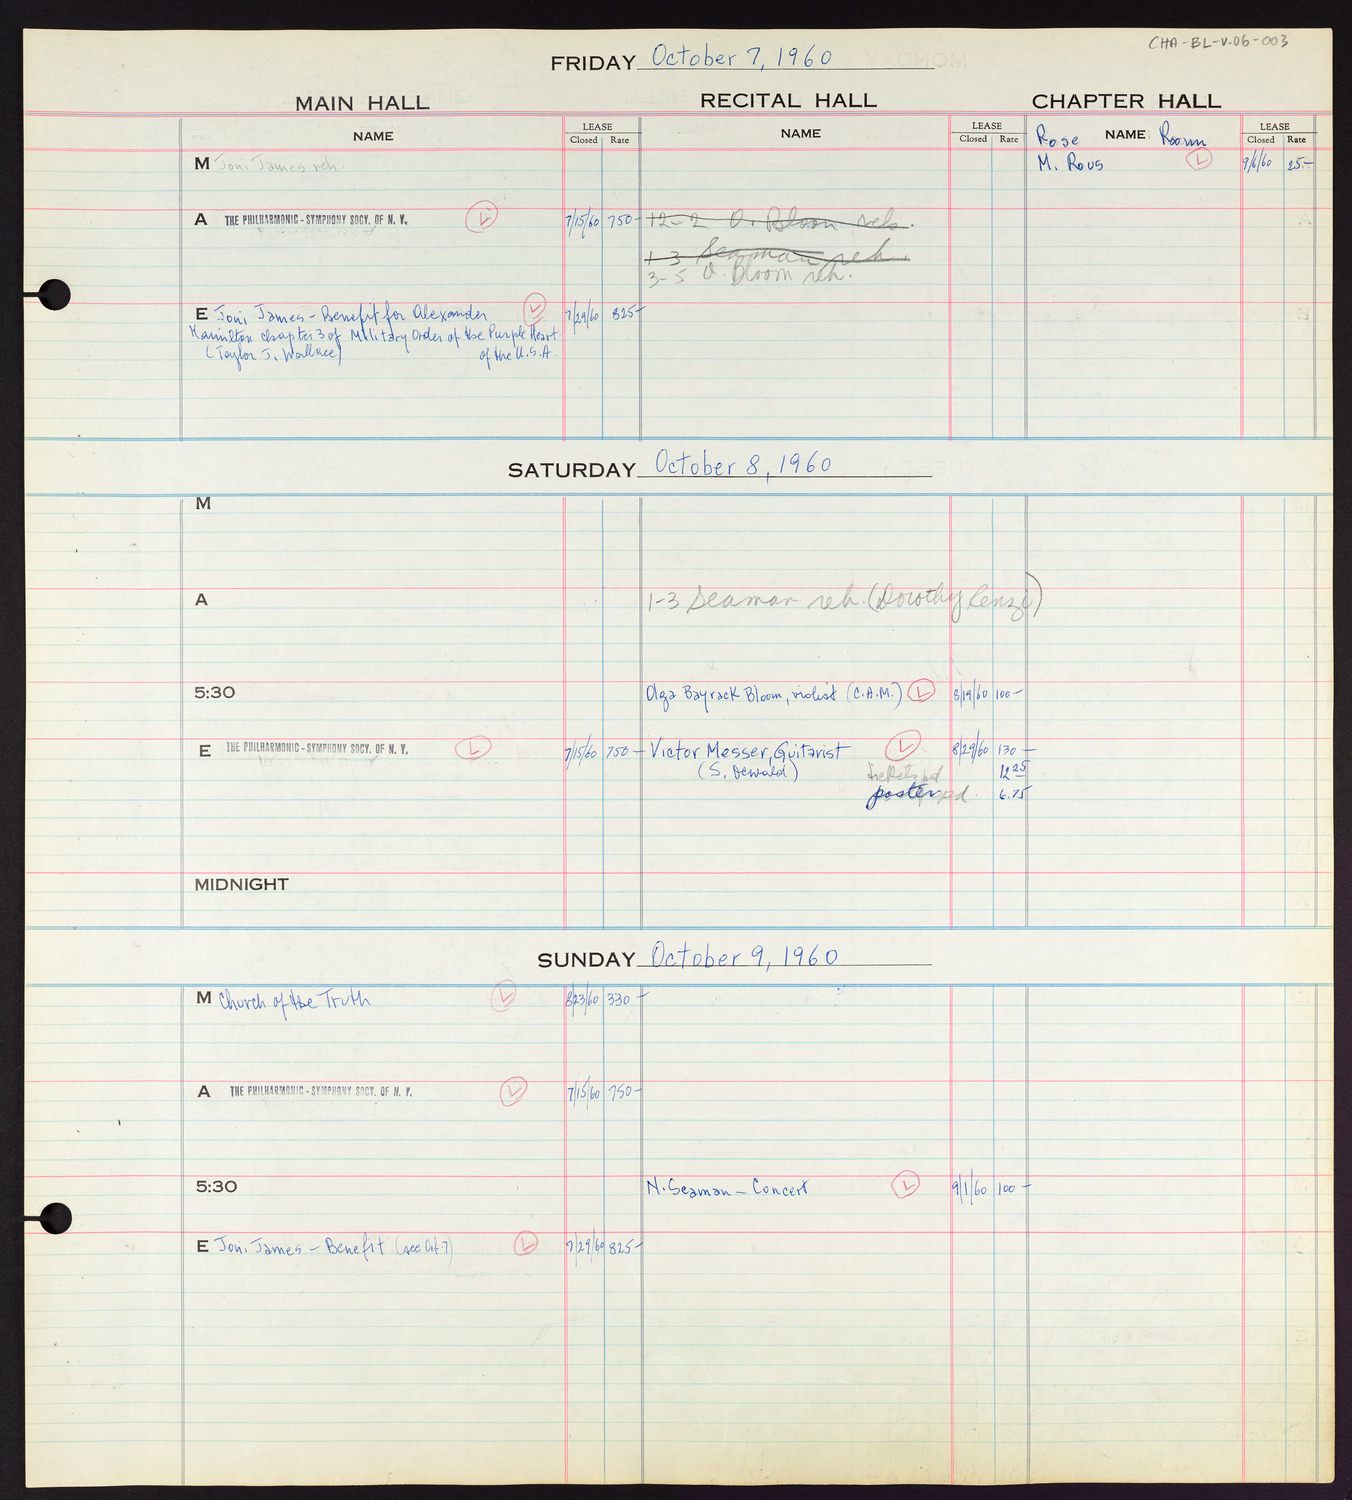 CHA-BL-V.06-003
FRIDAY October 7, 1960
MAIN HALL
RECITAL HALL
CHAPTER HALL
NAME
LEASE
Closed Rate
NAME
LEASE
Closed Rate
Rose NAME Room
LEASE
Closed Rate
M Joni James reh.
M. Rous L 9/6/60 25-
A THE PHILHARMONIC-SYMPHONY SOCY. OF N. Y. L 7/15/60 750-
12-2 O. Bloom reh.
1-3 Seaman reh.
3-5 O. Bloom reh.
E Joni James - Benefit for Alexander L 7/29/60 825-
Hamilton chapter 3 of Military Order of the Purple Heart
(Taylor J. Wallace) of the U.S.A.
SATURDAY October 8, 1960
M
A
1-3 Seaman reh. (Dorothy Renzi)
5:30
Olga Bayrack Bloom, violist (C.A.M.) L 8/19/60 100-
E THE PHILHARMONIC-SYMPHONY SOCY. OF N. Y. L 7/15/60 750-
Victor Messer, Guitarist L 8/29/60 130-
(S. Oswald) pd 12 25
poster pd. 6.75
MIDNIGHT
SUNDAY October 9, 1960
M Church of the Truth L 8/23/60 330-
A THE PHILHARMONIC-SYMPHONY SOCY. OF N. Y. L 7/15/60 750-
5:30
N. Seaman - Concert L 9/1/60 100-
E Joni James - Benefit (see Oct. 7) L 7/29/60 825-